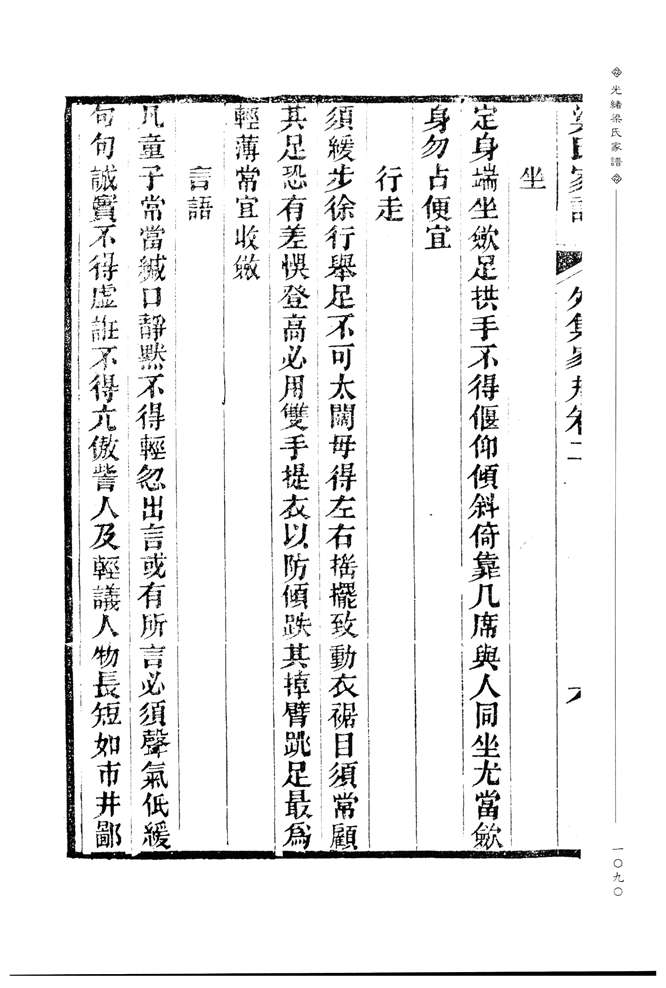 光緒梁氏家譜
一〇九〇
梁氏家譜 外集家規卷二
坐
定身端坐歛足拱手不得偃仰傾斜倚靠几席與人同坐尤當歛
身勿占便宜
行走
須緩步徐行舉足不可太闊毋得左右搖擺致動衣裾目須常顧
其足恐有差悞登高必用雙手提衣以防傾跌其掉臂跳足最為
輕薄常宜收斂
言語
凡童子常當緘口靜黙不得輕忽出言或有所言必須聲氣低緩
句句誠實不得虛誑不得亢傲訾人及輕議人物長短如市井鄙